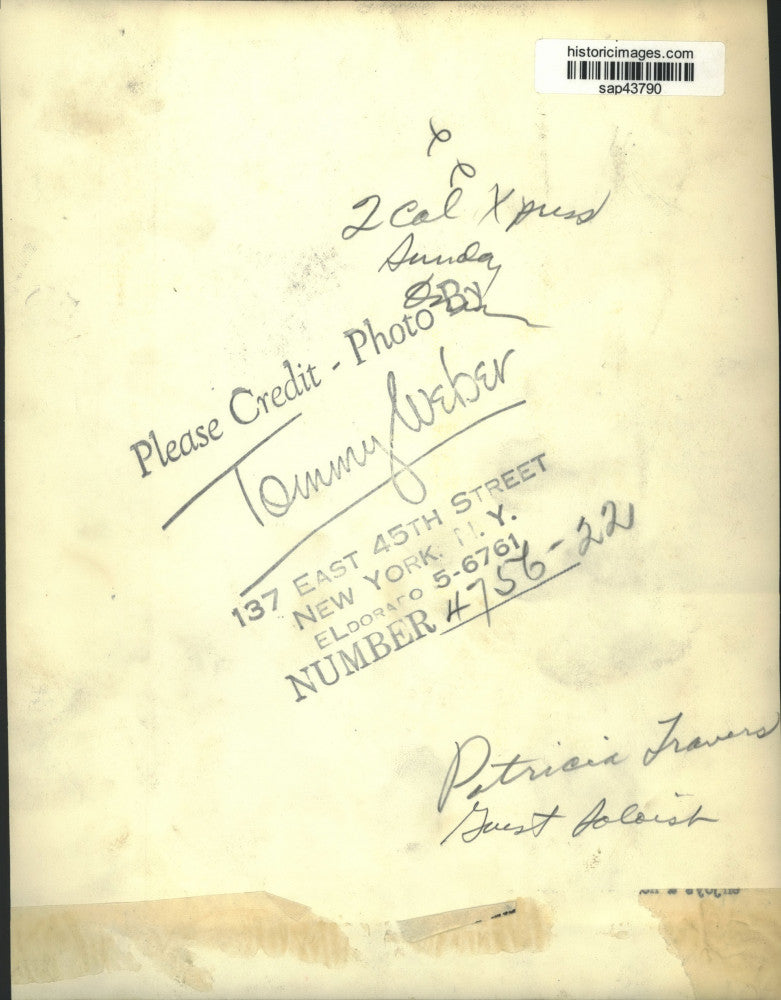 historicimages.com
sap43790
2 Col Xpress
Sunday
Please Credit - Photo By
Tommy Weber
137 EAST 45TH STREET
NEW YORK, N. Y.
ELDORADO 5-6761
NUMBER 4756-22
Patricia Travers
Guest Soloist